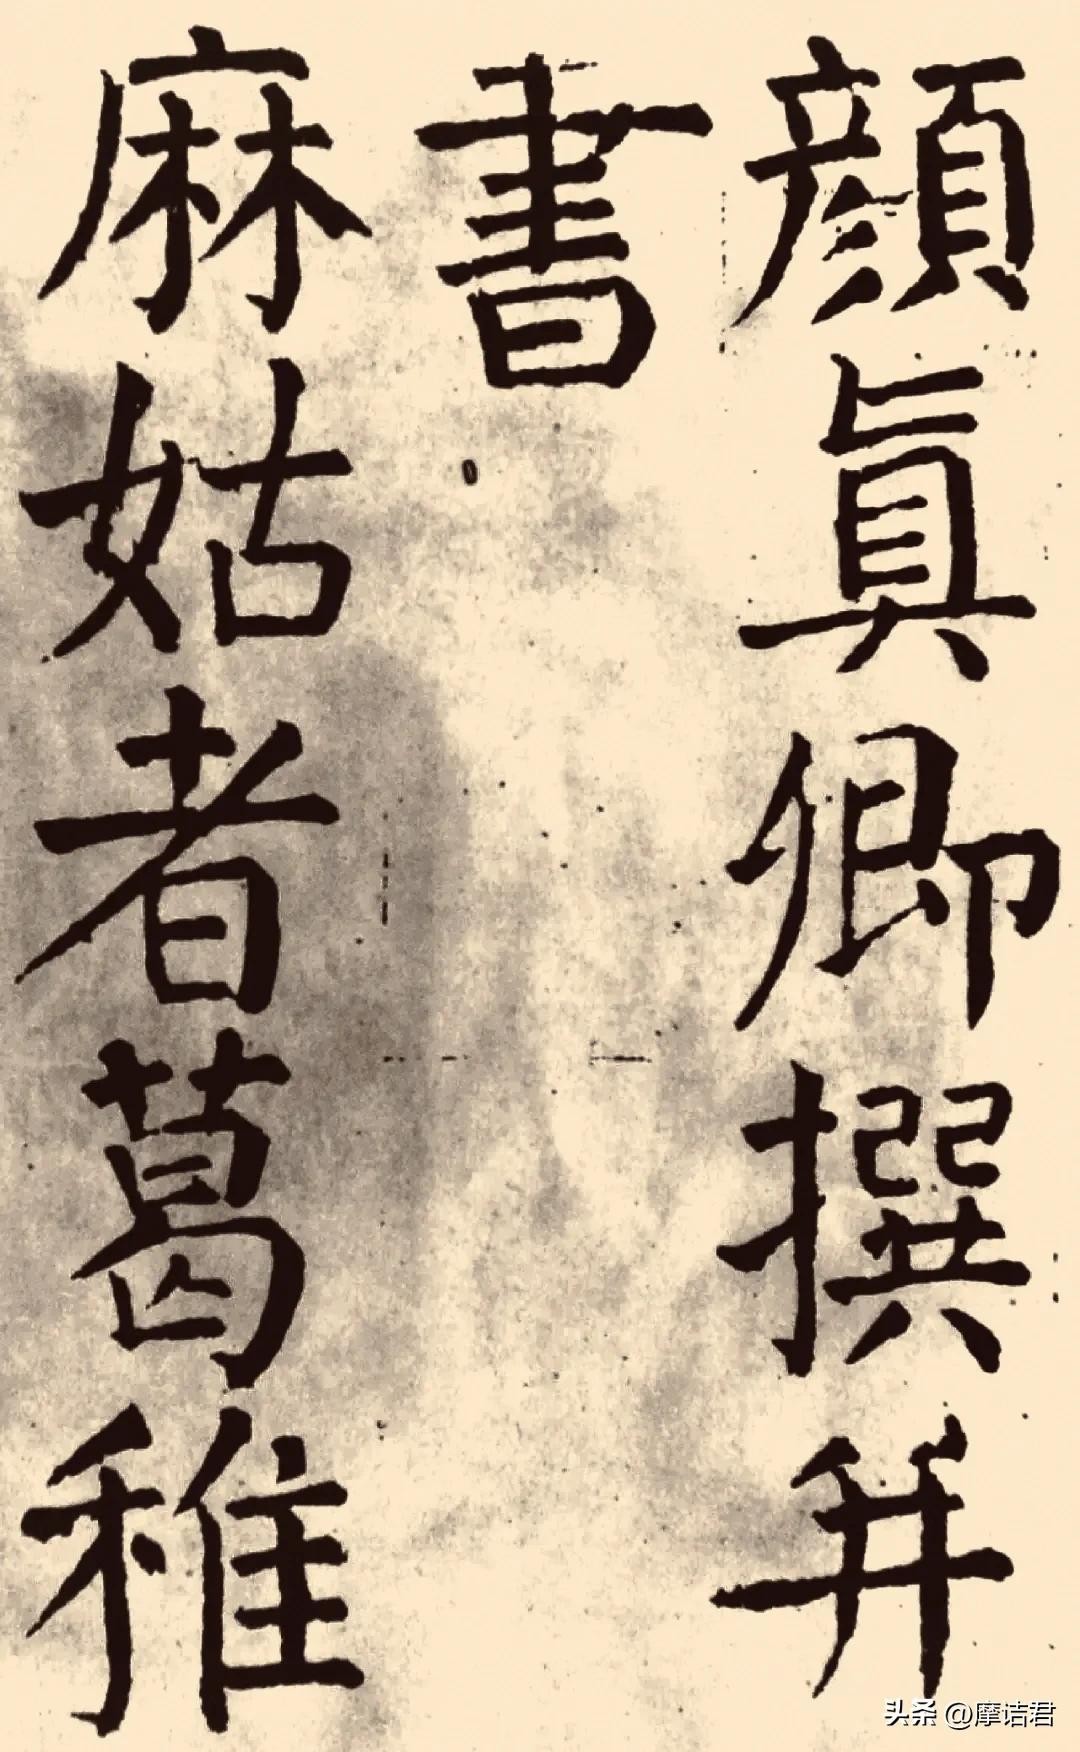 顔眞卿撰并
書
麻姑者葛稚
头条 @摩诘君